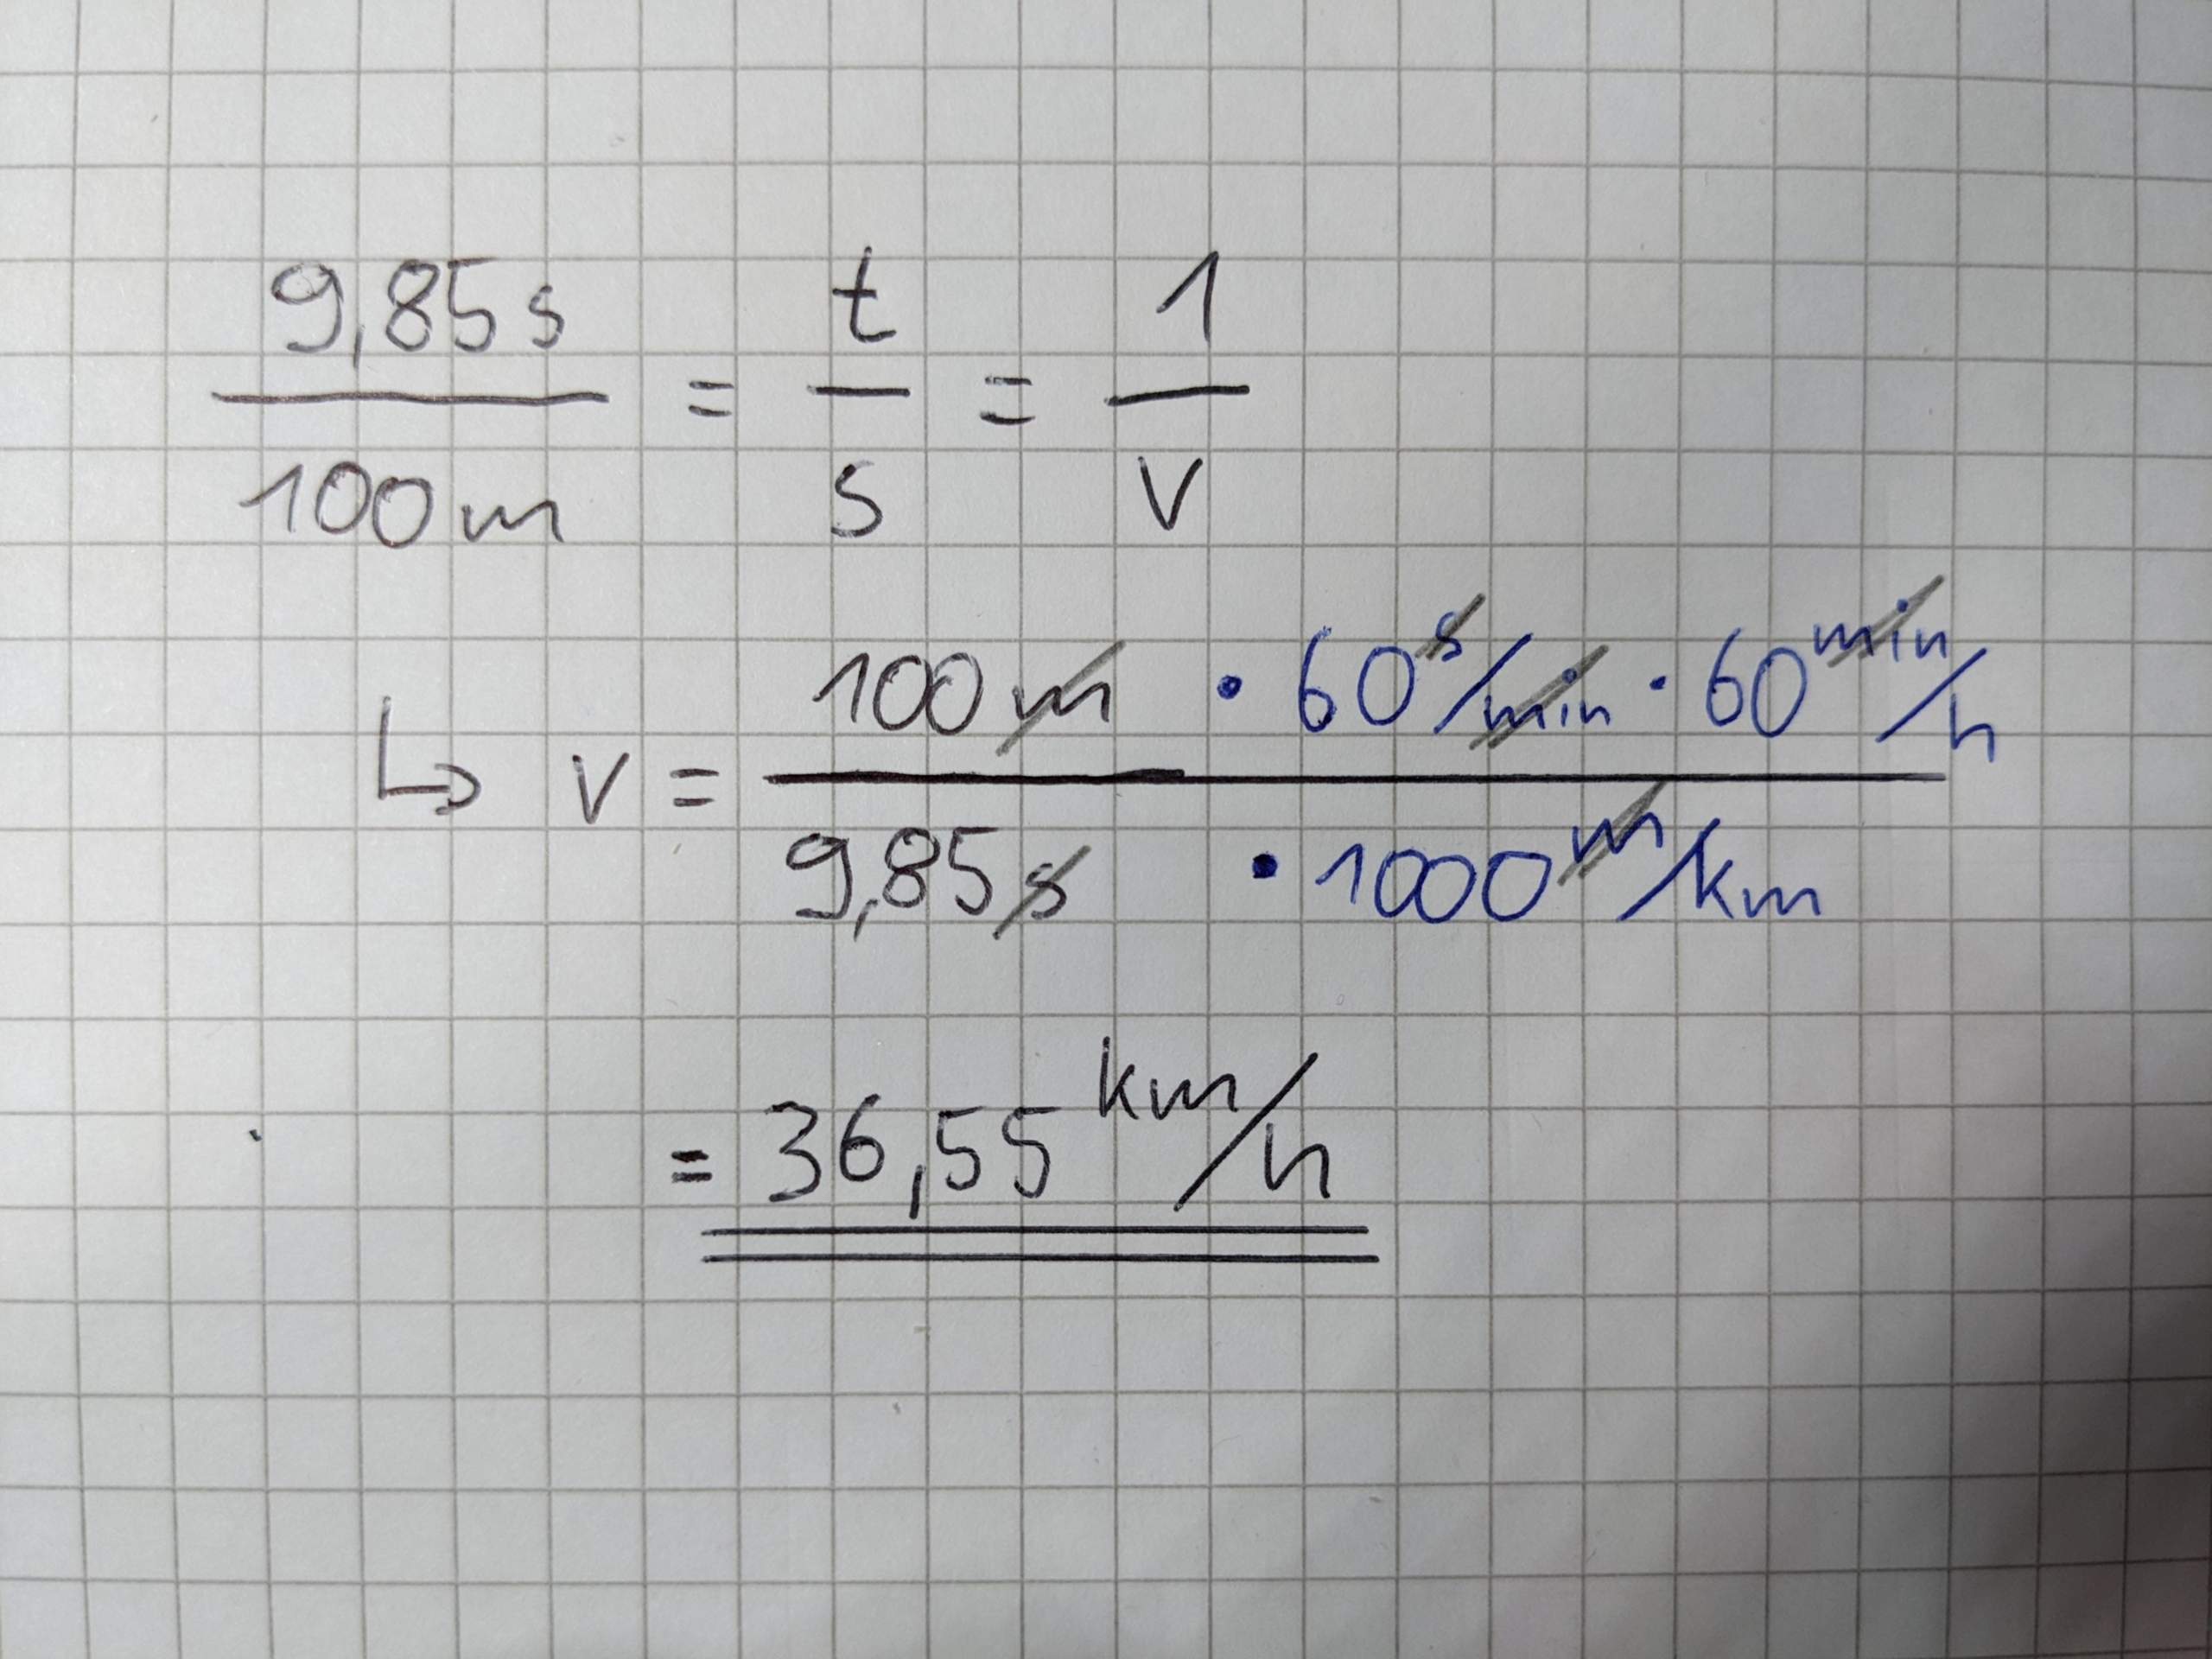 9,85 s / 100 m = t / s = 1 / v
↳ v = 100 m · 60 s/min · 60 min/h / 9,85 s · 1000 m/km
= 36,55 km/h